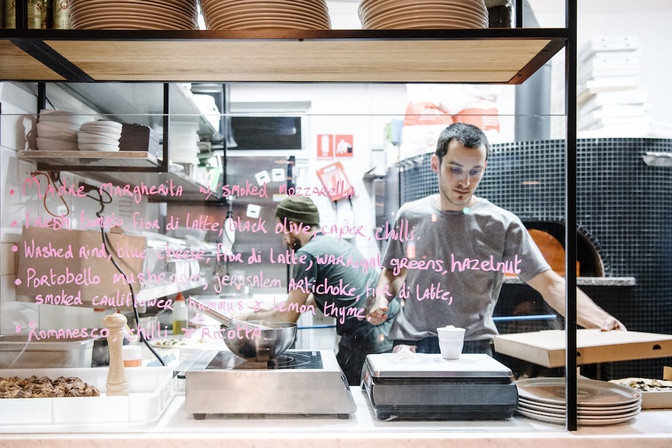 • Madre margherita w smoked mozzarella
• Fresh tomato, fior di latte, black olive, caper, chilli
• Washed Rind, blue cheese, fior di latte, warrigal greens, hazelnut
• Portobello mushroom, jerusalem Artichoke, fior di latte,
smoked cauliflower hummus & lemon thyme
• Romanesco, chilli & Ricotta